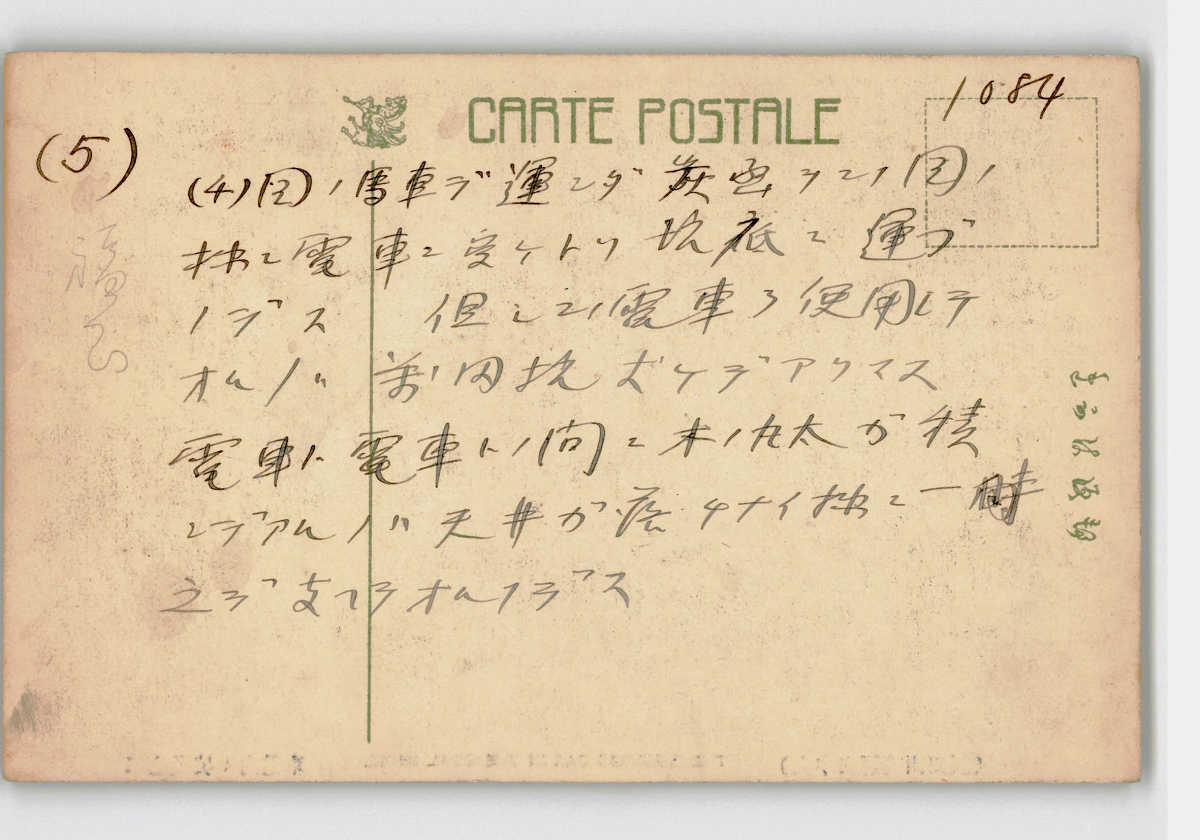 CARTE POSTALE
1084
(5)
(4)図ノ馬車デ運ンダ炭函ヲコノ図ノ
様ニ電車ニ受ケトリ坑底ニ運ブ
ノデス 但シコノ電車ヲ使用シテ
オルノハ 萬田坑丈ケデアリマス
電車ト電車トノ間ニ木ノ丸太ガ積
ンデアルノハ天井ガ落チナイ様ニ一時
之デ支ヘテオルノデス